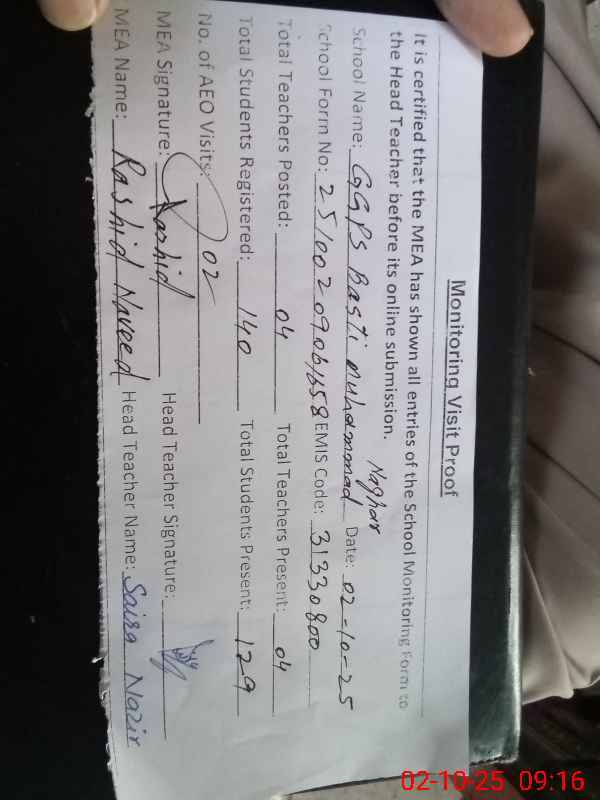 Monitoring Visit Proof
It is certified that the MEA has shown all entries of the School Monitoring Form to
the Head Teacher before its online submission.
Naghar
School Name: GGPS Basti Muhammad Date: 02-10-25
School Form No: EMIS Code: 31330800
Total Teachers Posted: 04 Total Teachers Present: 04
Total Students Registered: 140 Total Students Present: 129
No. of AEO Visits: 02
MEA Signature: Rashid Head Teacher Signature:
MEA Name: Rashid Naveed Head Teacher Name: Saira Nazir
02-10-25 09:16